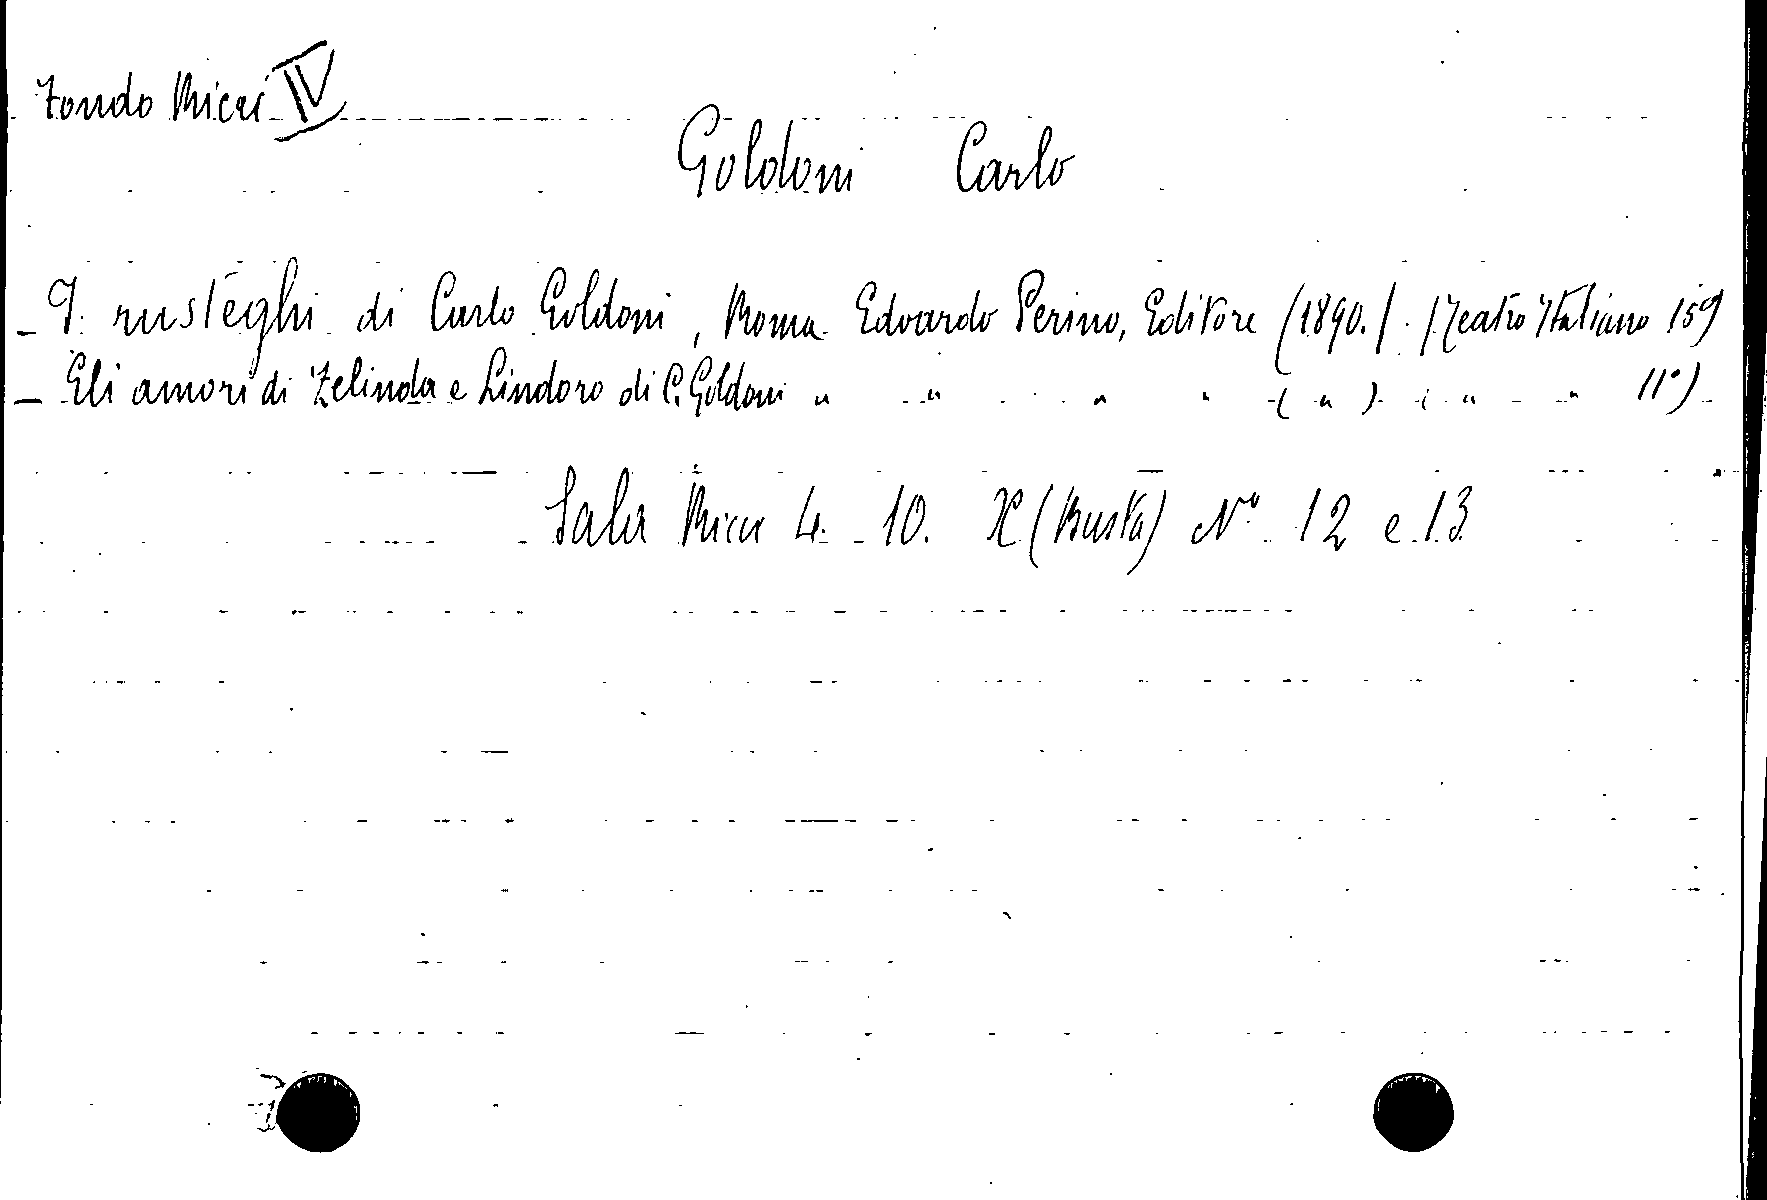 Fondo Ricci IV
Goldoni Carlo
- I rusteghi di Carlo Goldoni, Roma Edoardo Perino, Editore (1890.) (Teatro Italiano 159
- Gli amori di Zelinda e Lindoro di C. Goldoni " " " " ( " ) ( " " 11°)
Sala Ricci 4. 10. X (Busta) N° 12 e 13